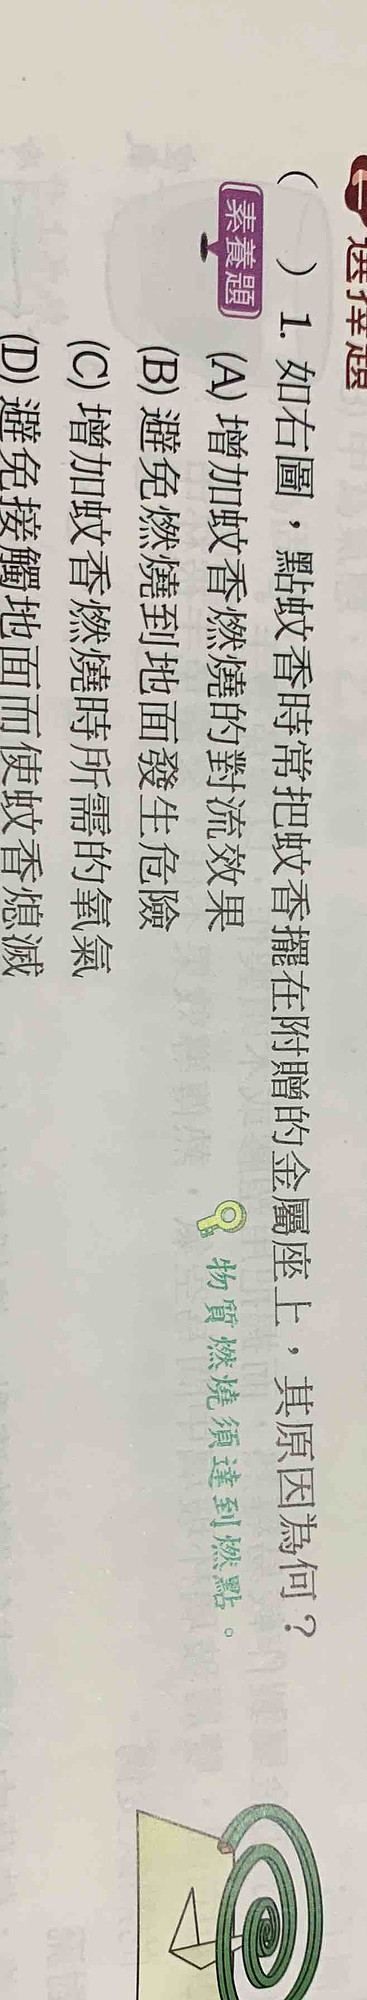 選擇題
( ) 1. 如右圖，點蚊香時常把蚊香擺在附贈的金屬座上，其原因為何？
素養題
(A) 增加蚊香燃燒的對流效果
(B) 避免燃燒到地面發生危險
物質燃燒須達到燃點。
(C) 增加蚊香燃燒時所需的氧氣
(D) 避免接觸地面而使蚊香熄滅